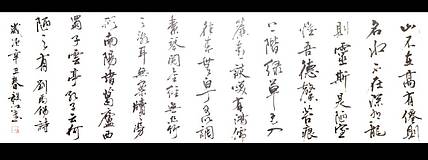 山不在高有僊則
名水不在深有龍
則靈斯是陋室
惟吾德馨苔痕
上階綠草色入
簾青談咲有鴻儒
往來無白丁可以調
素琴閱金經無絲竹
之亂耳無案牘之勞
形南陽諸葛廬西
蜀子雲亭孔子云何
陋之有 劉禹錫詩
歲次辛三春